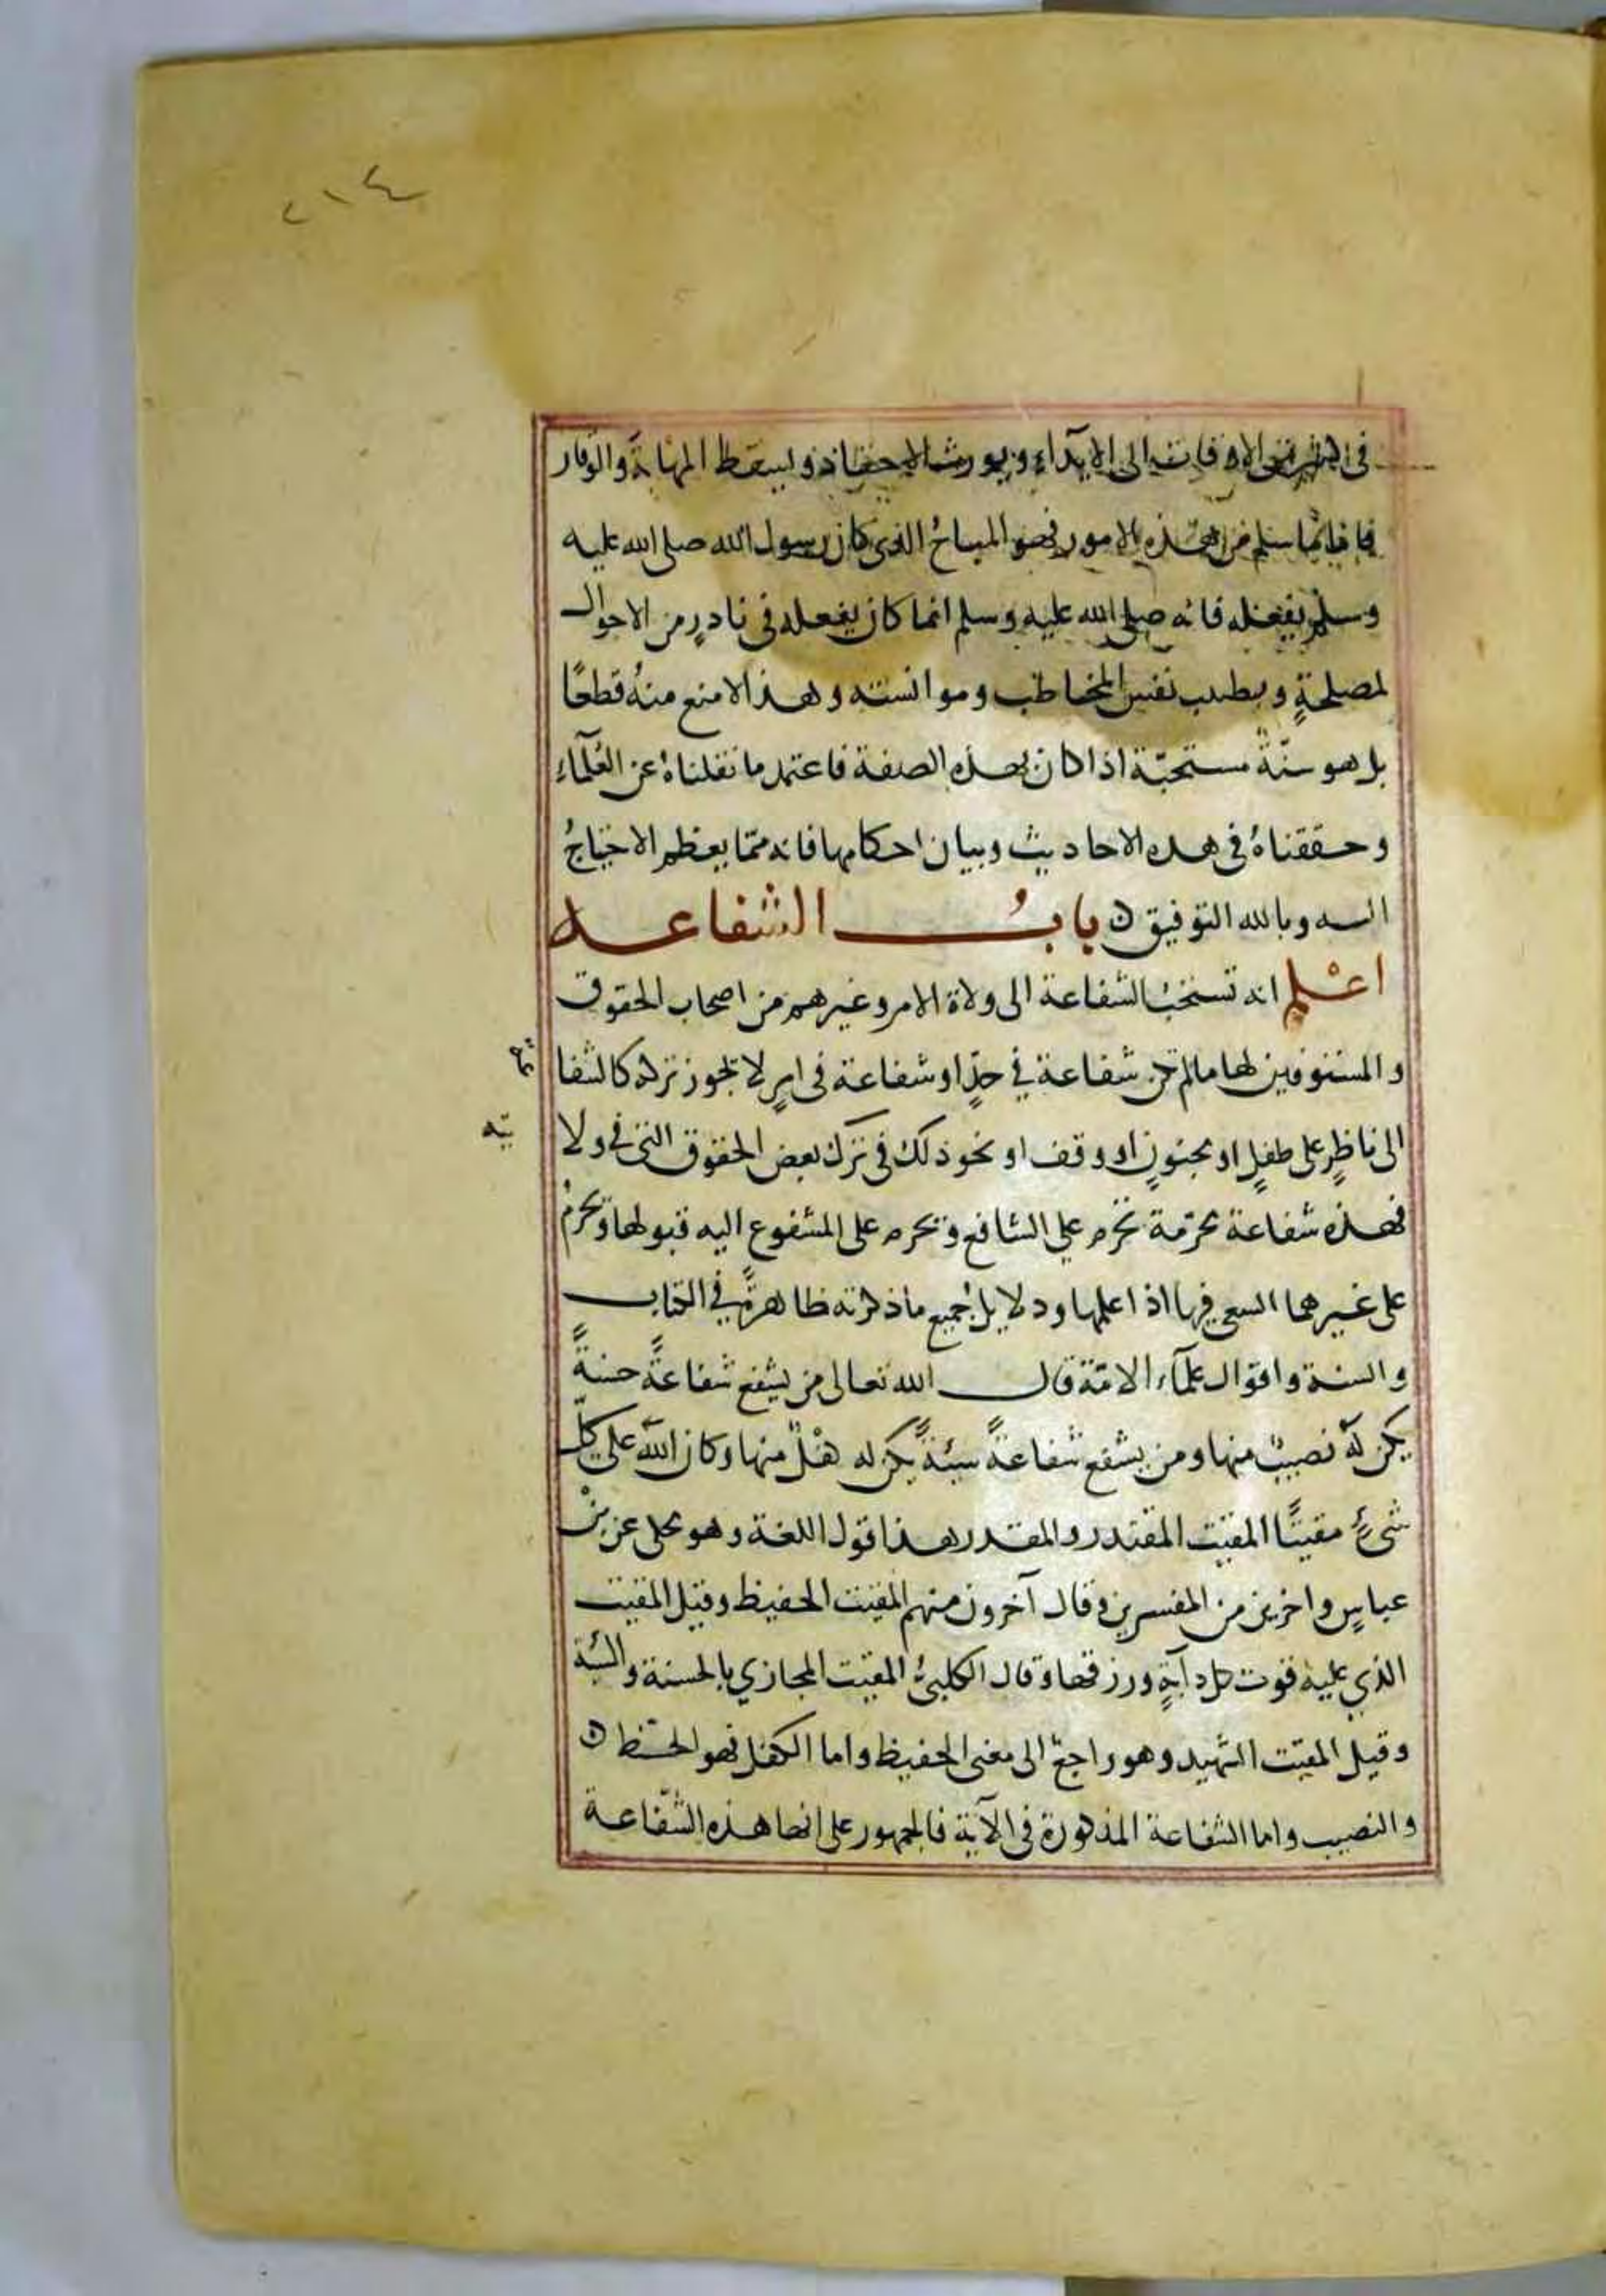 ٢١٤
في الاوقات الى الايذاء ويورث الاحقاد ويسقط المهابة والوقار
فاما ما سلم من هذه الامور فهو المباح الذي كان رسول الله صلى الله عليه
وسلم يفعله فانه صلى الله عليه وسلم انما كان يفعله في نادرٍ من الاحوال
لمصلحةٍ وتطيب نفس المخاطب وموانسته وهذا لا منع منهُ قطعًا
بل هو سنّة مستحبّة اذا كان بهذه الصفة فاعتمد ما نقلناهُ عن العُلمآء
وحققناهُ في هذه الاحاديث وبيان احكامها فانه ممّا يعظم الاحتياجُ
اليه وبالله التوفيق ن بابُ الشفاعه
اعْلم انه تستحبُ الشفاعة الى ولاة الامر وغيرهم من اصحاب الحقوق
والمستوفين لها مالم تكن شفاعة في حدٍّ او شفاعة في امرٍ لا يجوز تركه كالشفا
عة
الى ناظرٍ على طفلٍ او مجنونٍ او وقف او نحو ذلك في ترك بعض الحقوق التي في ولا
يته
فهذه شفاعة محرّمة تحرم على الشافع وتحرم على المشفوع اليه قبولها وتحرمُ
على غيرهما السعي فيها اذا علمها ودلايل جُميع ما ذكرته ظاهرةٌ في الكتاب
والسنة واقوال علمآء الامّة قال الله تعالى من يشفع شفاعةً حسنةً
يكن لهُ نصيبٌ منها ومن يشفع شفاعةً سيئةً يكن له كفْلٌ منها وكان اللّه على كلّ
شئٍ مقيتًا المقيت المقتدر والمقدر هذا قول اللغة وهو محكى عن بنْ
عباسٍ واخرين من المفسرين وقال آخرون منهم المقيت الحفيظ وقيل المقيت
الذي عليه قوت كل دآبةٍ ورزقها وقال الكلبىُّ المقيت المجازي بالحسنة والسيّئة
وقيل المقيت الشهيد وهو راجعٌ الى معنى الحفيظ واما الكفل فهو الحظ ن
والنصيب واما الشفاعة المذكورة في الآية فالجمهور على انها هذه الشّفاعة